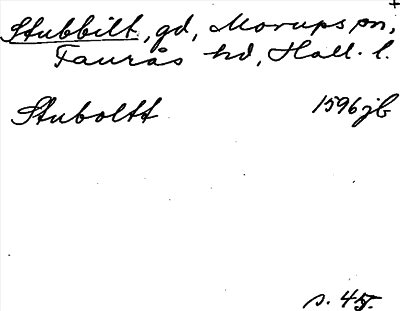 Stubbilt, gd, Morups sn,
Faurås hd, Hall. l.
Stuboltt 1596 jb
s. 45.